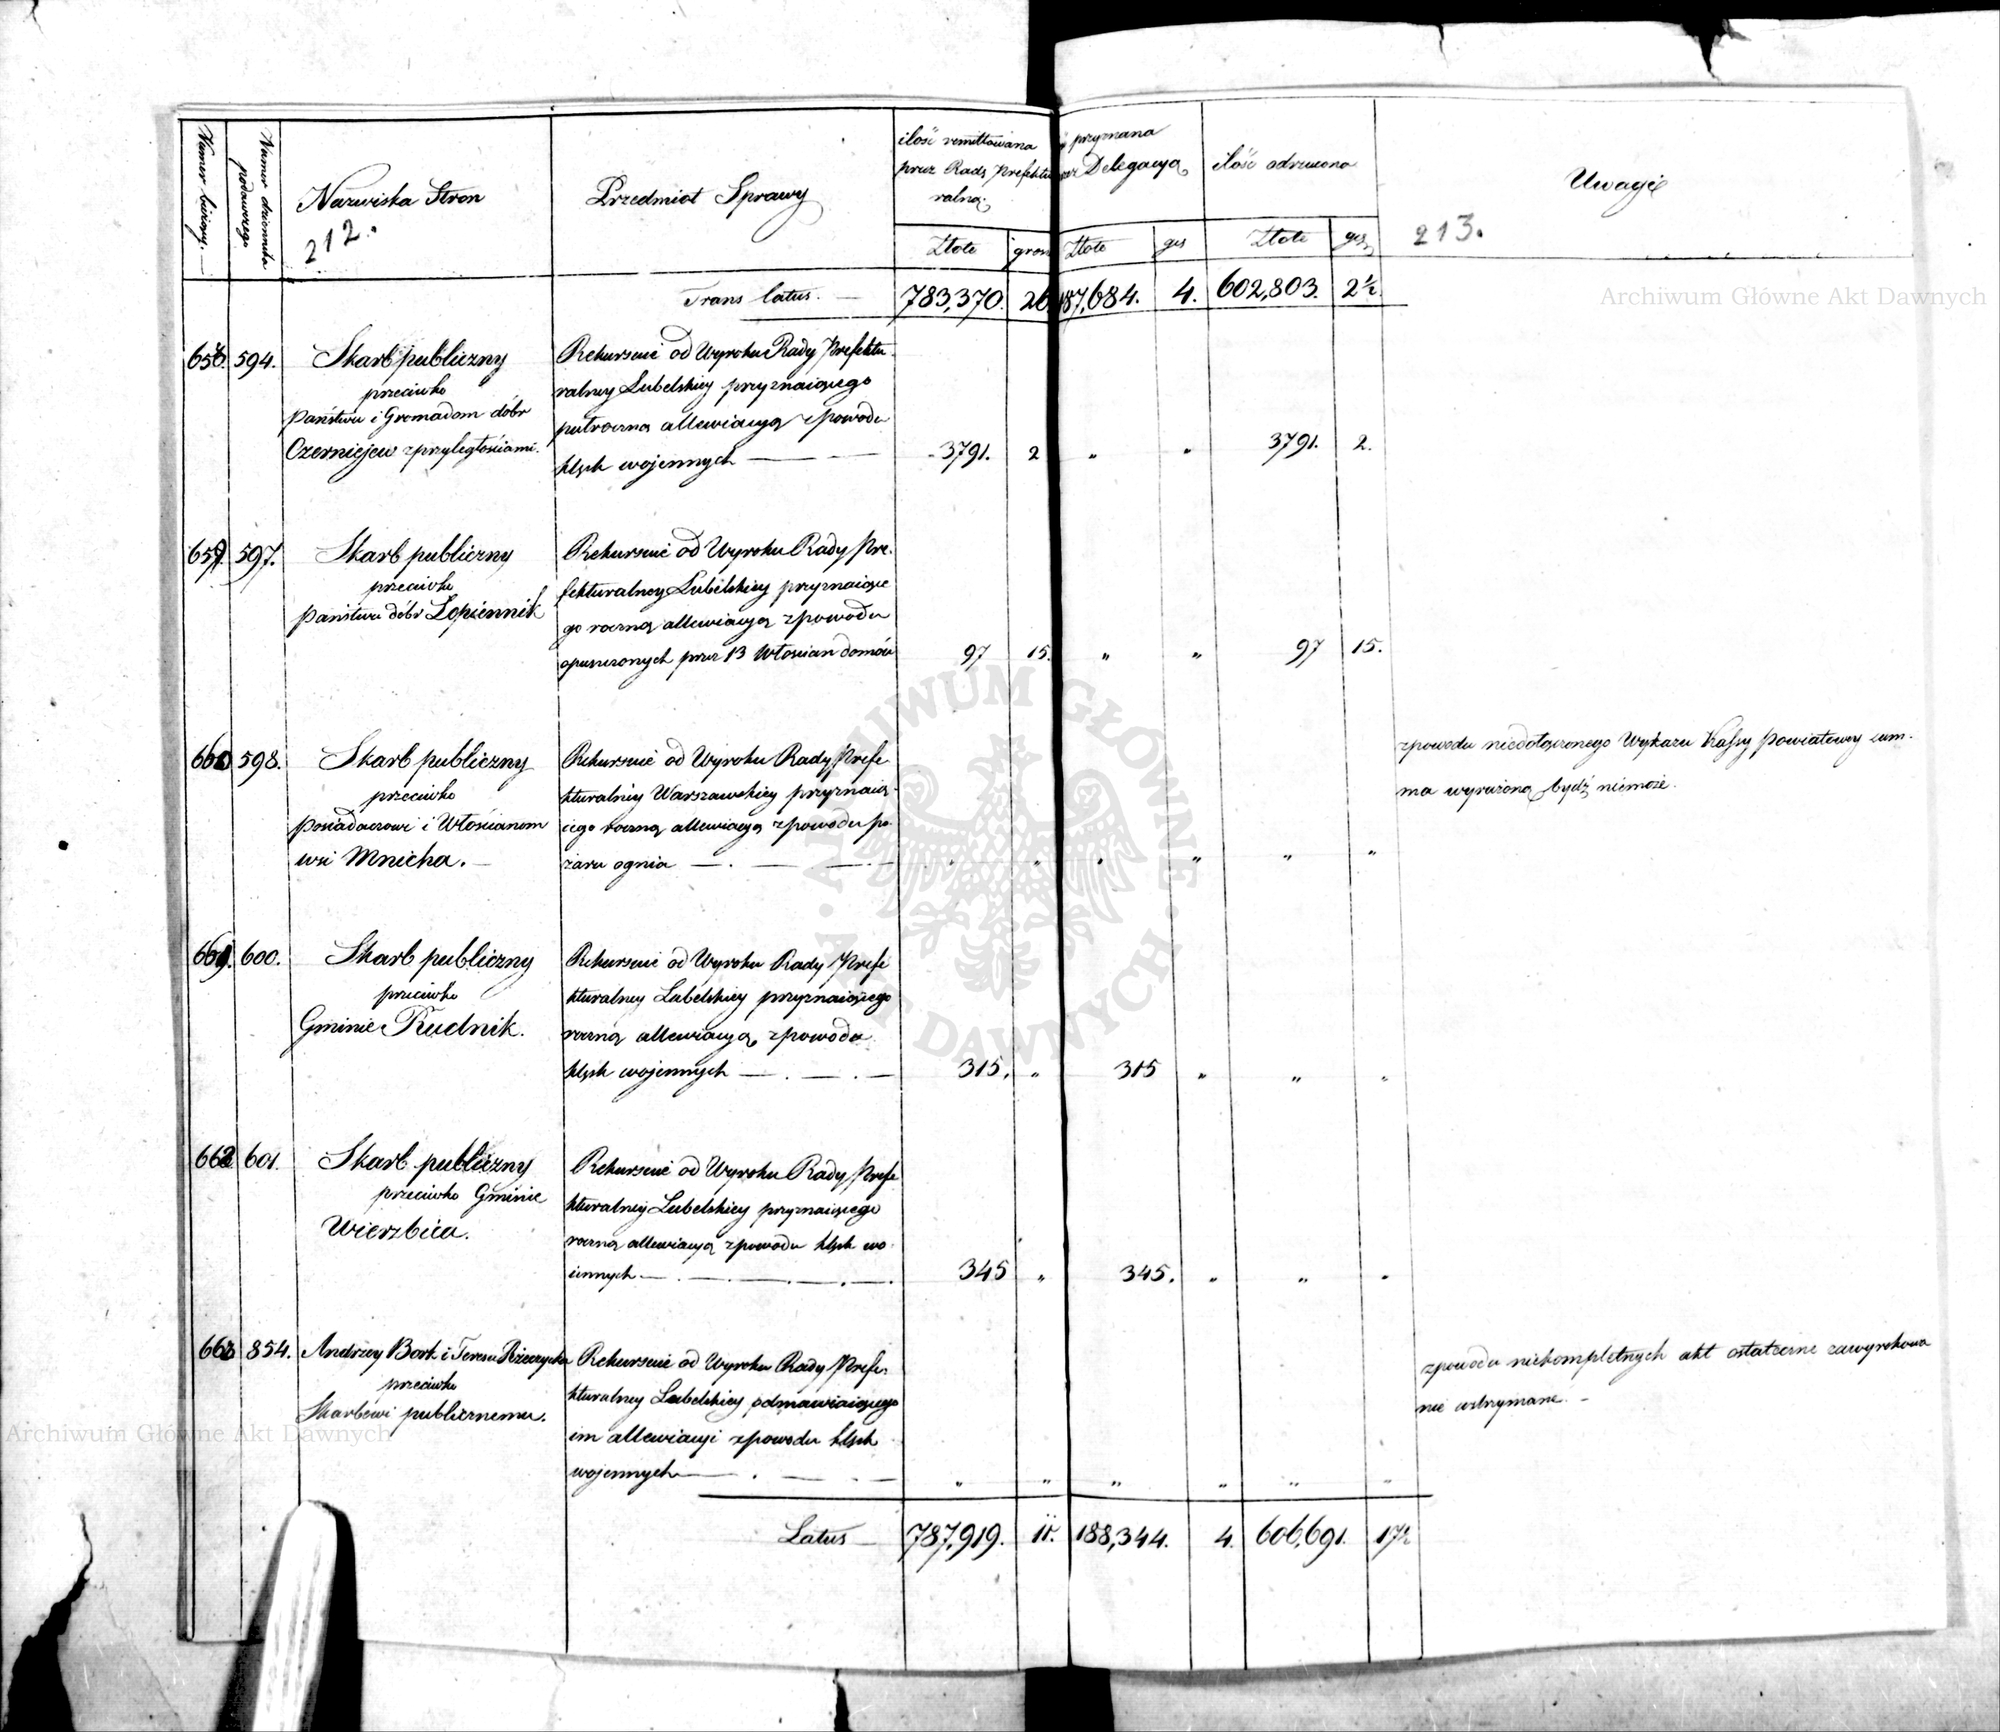 Numer bieżący.
Numer dziennika podawczego
Nazwiska Stron
212.
Przedmiot Sprawy
ilość remittowana
przez Radę Prefektu
ralną.
Złote
grosz
przyznana
Delegacyą
Złote
gr
ilość odrzucona
Złote
gr
Uwagie
213.
Trans latus. — 783,370. 26 187,684. 4. 602,803. 2½
658. 594. Skarb publiczny
przeciwko
Państwu i Gromadom dóbr
Czerniejew z przyległościami.
Rekursuie od Wyroku Rady Prefektu
ralney Lubelskiey przyznaiącego
pułroczną allewiacyą z powodu
klęsk wojennych — 3791. 2 „ „ 3791. 2.
659. 597. Skarb publiczny
przeciwko
Państwu dóbr Łopiennik
Rekursuie od Wyroku Rady Pre-
fekturalney Lubelskiey przyznaiące
go roczną allewiacyą z powodu
opuszczonych przez 13 Włościan domów 97 15. „ „ 97 15.
660 598. Skarb publiczny
przeciwko
Posiadaczowi i Włościanom
wsi Mnicha. —
Rekursuie od Wyroku Rady Prefe
kturalney Warszawskiey przyznaią-
cego roczną allewiacyą z powodu po-
żaru ognia — . — „ „ „ „ „ „
z powodu niedołączonego Wykazu Kassy Powiatowey sum-
ma wyrażoną bydź niemoże.
661. 600. Skarb publiczny
przeciwko
Gminie Rudnik.
Rekursuie od Wyroku Rady Prefe
kturalney Lubelskiey przyznaiącego
roczną allewiacyą z powodu
klęsk wojennych — . — . — 315. „ 315 „ „ „
662 601. Skarb publiczny
przeciwko Gminie
Wierzbica.
Rekursuie od Wyroku Rady Prefe
kturalney Lubelskiey przyznaiącego
roczną allewiacyą z powodu klęsk wo-
iennych — . — . — 345 „ 345. „ „ „
663 854. Andrzey Bork i Teresa Rzeczycka
przeciwko
Skarbówi publicznemu.
Rekursuie od Wyroku Rady Prefe-
kturalney Lubelskiey odmawiaiącego
im allewiacyi z powodu klęsk
wojennych — . — „ „ „ „ „ „
z powodu niekompletnych akt ostateczne zawyrokowa
nie wstrzymane. —
Latus — 787,919. 11. 188,344. 4. 606,691. 17½
Archiwum Główne Akt Dawnych
Archiwum Główne Akt Dawnych
ARCHIWUM GŁÓWNE AKT DAWNYCH